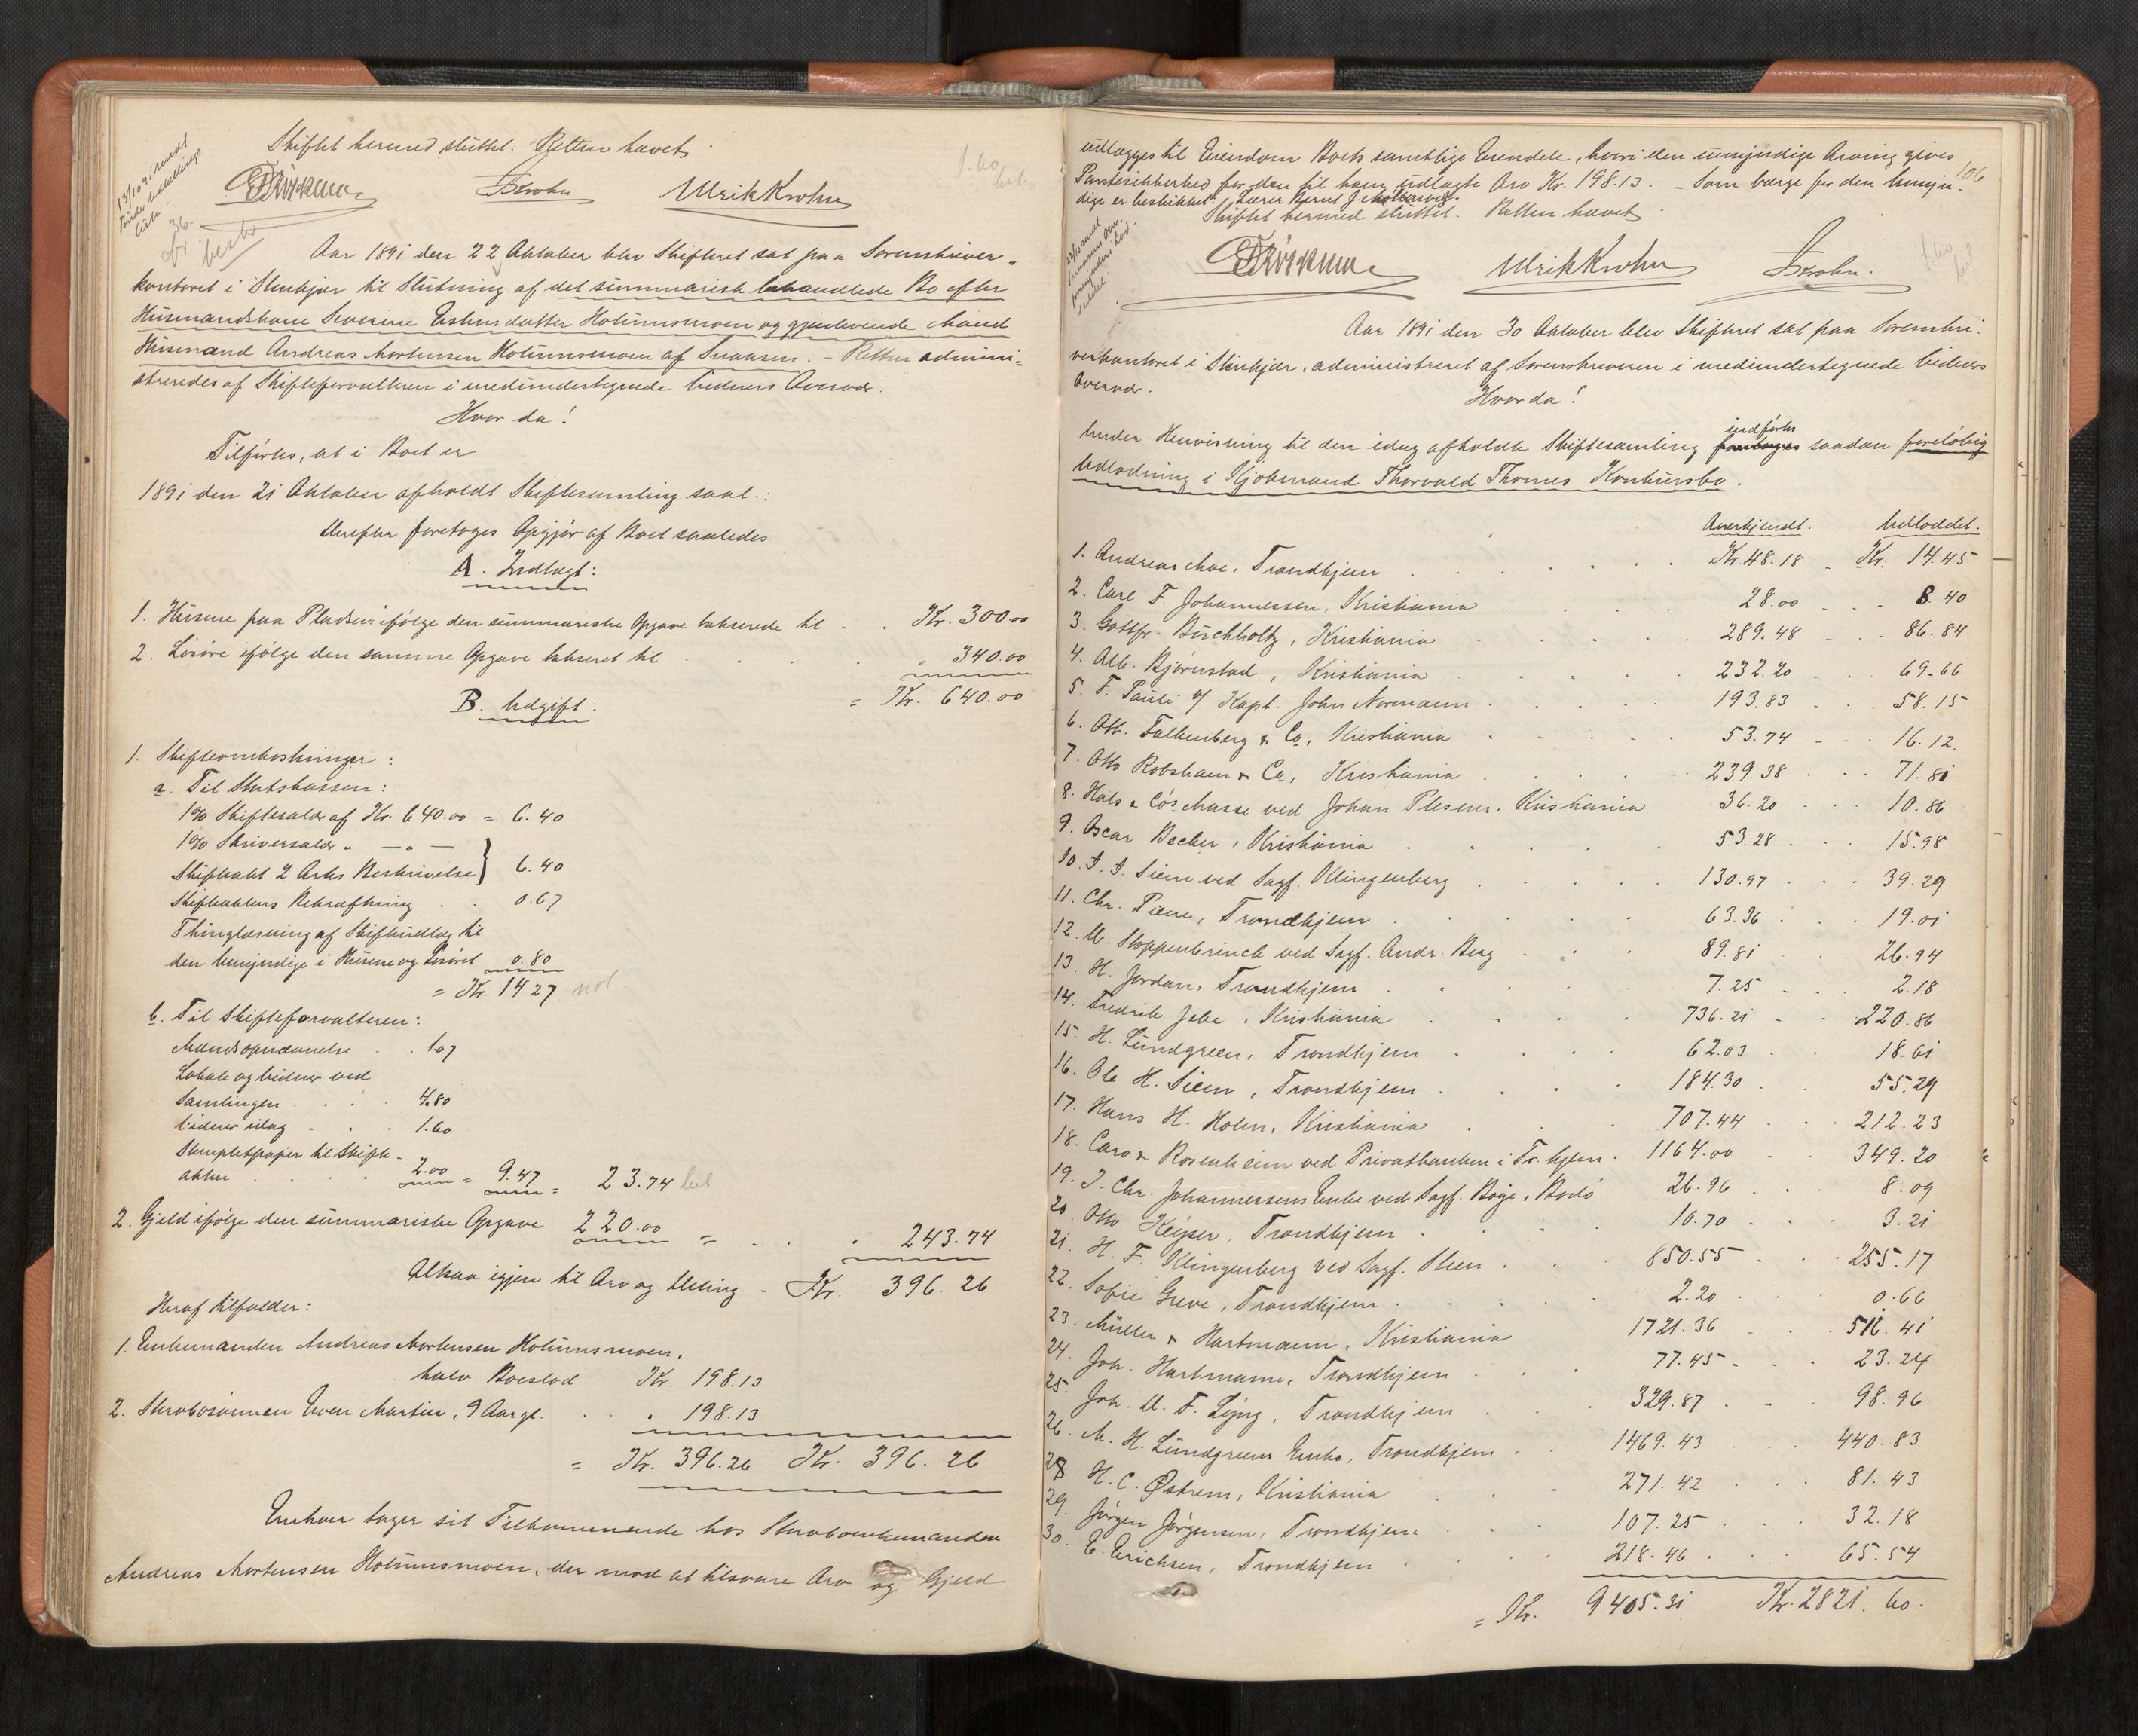 Skiftet hermed sluttet. Retten hævet.
Ulrik Krohn
Aar 1891 den 22 Oktober blev Skifteret sat paa Sorenskriver-
kontoret i Stenkjær til Slutning af det summarisk behandlede Bo efter
Husmandskone Severine Estensdatter Holumsmoen og gjenlevende Mand
Husmand Andreas Mortensen Holumsmoen af Snaasen. - Retten admini-
streredes af Skifteforvalteren i medundertegnede Vidners Overvær.
Hvor da!
Tilførtes, at i Boet er
1891 den 21 Oktober afholdt Skiftesamling saal.:
Derefter foretoges Opgjør af Boet saaledes
A. Indtægt:
1. Husene paa Pladsen ifølge den summariske Opgave takserede til . . Kr. 300.00
2. Løsøre ifølge den samme Opgave takseret til . . . " 340.00
= Kr. 640.00
B. Udgift:
1. Skifteomkostninger:
a. Til Statskassen:
1% Skifteafald af Kr. 640.00 = 6.40
1% Skriversalær " — " —
Skifteakt 2 Arks Beskrivelse } 6.40
Skifteaktens Bekræftning . . 0.67
Thinglæsning af Skifteudlæg til
den Umyndige i Husene og Løsøret 0.80
= Kr. 14.27
b. Til Skifteforvalteren:
Mændsopnævnelse . . 1.07
Lokale og Vidner ved
Samlingen . . . . 4.80
Vidner idag . . . 1.60
Stempletpapir til Skifte-
akten . . . . 2.00 = 9.47 = 23.74
2. Gjeld ifølge den summariske Opgave 220.00 = . . . 243.74
Altsaa igjen til Arv og Deling - Kr. 396.26
Heraf tilfalder:
1. Enkemanden Andreas Mortensen Holumsmoen,
halv Boeslod Kr. 198.13
2. Stervbosønnen Even Martin, 9 Aar gl. . . . 198.13
= Kr. 396.26 Kr. 396.26
Enhver tager sit Tilkommende hos Stervboenkemanden
Andreas Mortensen Holumsmoen, der mod at tilsvare Arv og Gjeld
106
udlægges til Eiendom Boets samtlige Eiendele, hvori den umyndige Arving gives
Pantesikkerhed for den til ham udlagte Arv Kr. 198.13. - Som Værge for den Umyn-
dige er beskikket: Lærer Bernt J.
Skiftet hermed sluttet. Retten hævet.
Ulrik Krohn
Aar 1891 den 30 Oktober blev Skifteret sat paa Sorenskri-
verkontoret i Stenkjær, administreret af Sorenskriveren i medundertegnede Vidners
Overvær.
Hvor da!
indførtes
Under Henvisning til den idag afholdte Skiftesamling saadan foreløbig
Udlodning i Kjøbmand Thorvald Thornes Konkursbo.
Anerkjendt. Udloddet.
1. Andreas Moe, Trondhjem . . . Kr. 48.18 - Kr. 14.45
2. Carl F. Johannessen, Kristiania . . . 28.00 - - 8.40
3. Gottfr. Buchholtz, Kristiania . . . 289.48 - . . 86.84
4. Alb. Bjørnstad, Kristiania . . . 232.20 . . . 69.66
5. F. Pauli v/ Kapt. John Normann . . . 193.83 . . . 58.15
6. Ott. Falkenberg & Co, Kristiania . . . 53.74 - - - 16.12
7. Otto Robsham & Co, Kristiania . . . 239.38 . . . 71.81
8. Hals & Co's Masse ved Johan Plesner, Kristiania 36.20 . . . 10.86
9. Oscar Becker, Kristiania . . . 53.28 . . . 15.98
10. I. I. Siem ved Sagf. Klingenberg . . . 130.97 . . . 39.29
11. Chr. Piene, Trondhjem . . . 63.36 . . . 19.01
12. U. Stoppenbrinck ved Sagf. Andr. Berg . . . 89.81 . . 26.94
13. H. Jordan, Trondhjem . . . 7.25 . . . 2.18
14. Fredrik Jebe, Kristiania . . . 736.21 - . . 220.86
15. H. Lundgreen, Trondhjem . . . 62.03 . . 18.61
16. Ole H. Siem, Trondhjem . . . 184.30 . . 55.29
17. Hans H. Holm, Kristiania . . . 707.44 . . . 212.23
18. Caro & Rosenheim ved Privatbanken i Tr.hjem . 1164.00 . . . 349.20
19. J. Chr. Johannessens Enke ved Sagf. Bøge, Bodø 26.96 . . . 8.09
20. Otto Keyser, Trondhjem . . . 10.70 . . . 3.21
21. H. F. Klingenberg ved Sagf. Steen . . . 850.55 . . . 255.17
22. Sofie Greve, Trondhjem . . . 2.20 . . . 0.66
23. Müller & Hartmann, Kristiania 1721.36 . . . 516.41
24. Joh. Hartmann, Trondhjem . . . 77.45 - . . 23.24
25. Joh. U. F. Lyng, Trondhjem . . . 329.87 . . . 98.96
26. M. H. Lundgreens Enke, Trondhjem . . . 1469.43 . . . 440.83
28. H. C. Østrem, Kristiania . . . 271.42 . . . 81.43
29. Jørgen Jørgensen, Trondhjem . . . 107.25 . . . 32.18
30. E. Erichsen, Trondhjem . . . 218.46 . . . 65.54
= Kr. 9405.31 Kr. 2821.60.